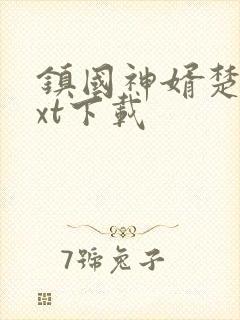 鎮國神婿楚
xt下載
7號兔子